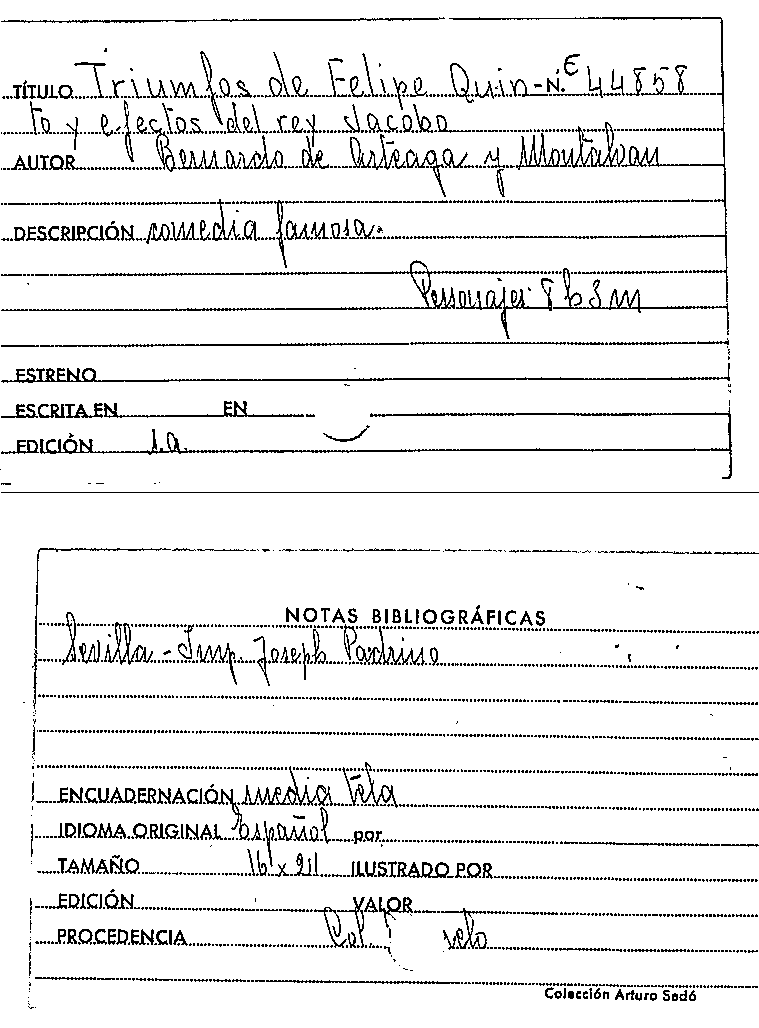 TÍTULO Triumfos de Felipe Quin- N.E 44858
to y efectos del rey Jacobo
AUTOR Bernardo de Arteaga y Montalvan
DESCRIPCIÓN comedia famosa.
Personajes 8 h 3 m
ESTRENO
ESCRITA EN EN
EDICIÓN s.a.
NOTAS BIBLIOGRÁFICAS
Sevilla - Imp. Joseph Padrino
ENCUADERNACIÓN media tela
IDIOMA ORIGINAL Español por
TAMAÑO ILUSTRADO POR
EDICIÓN VALOR
PROCEDENCIA Col
Colección Arturo Sedó